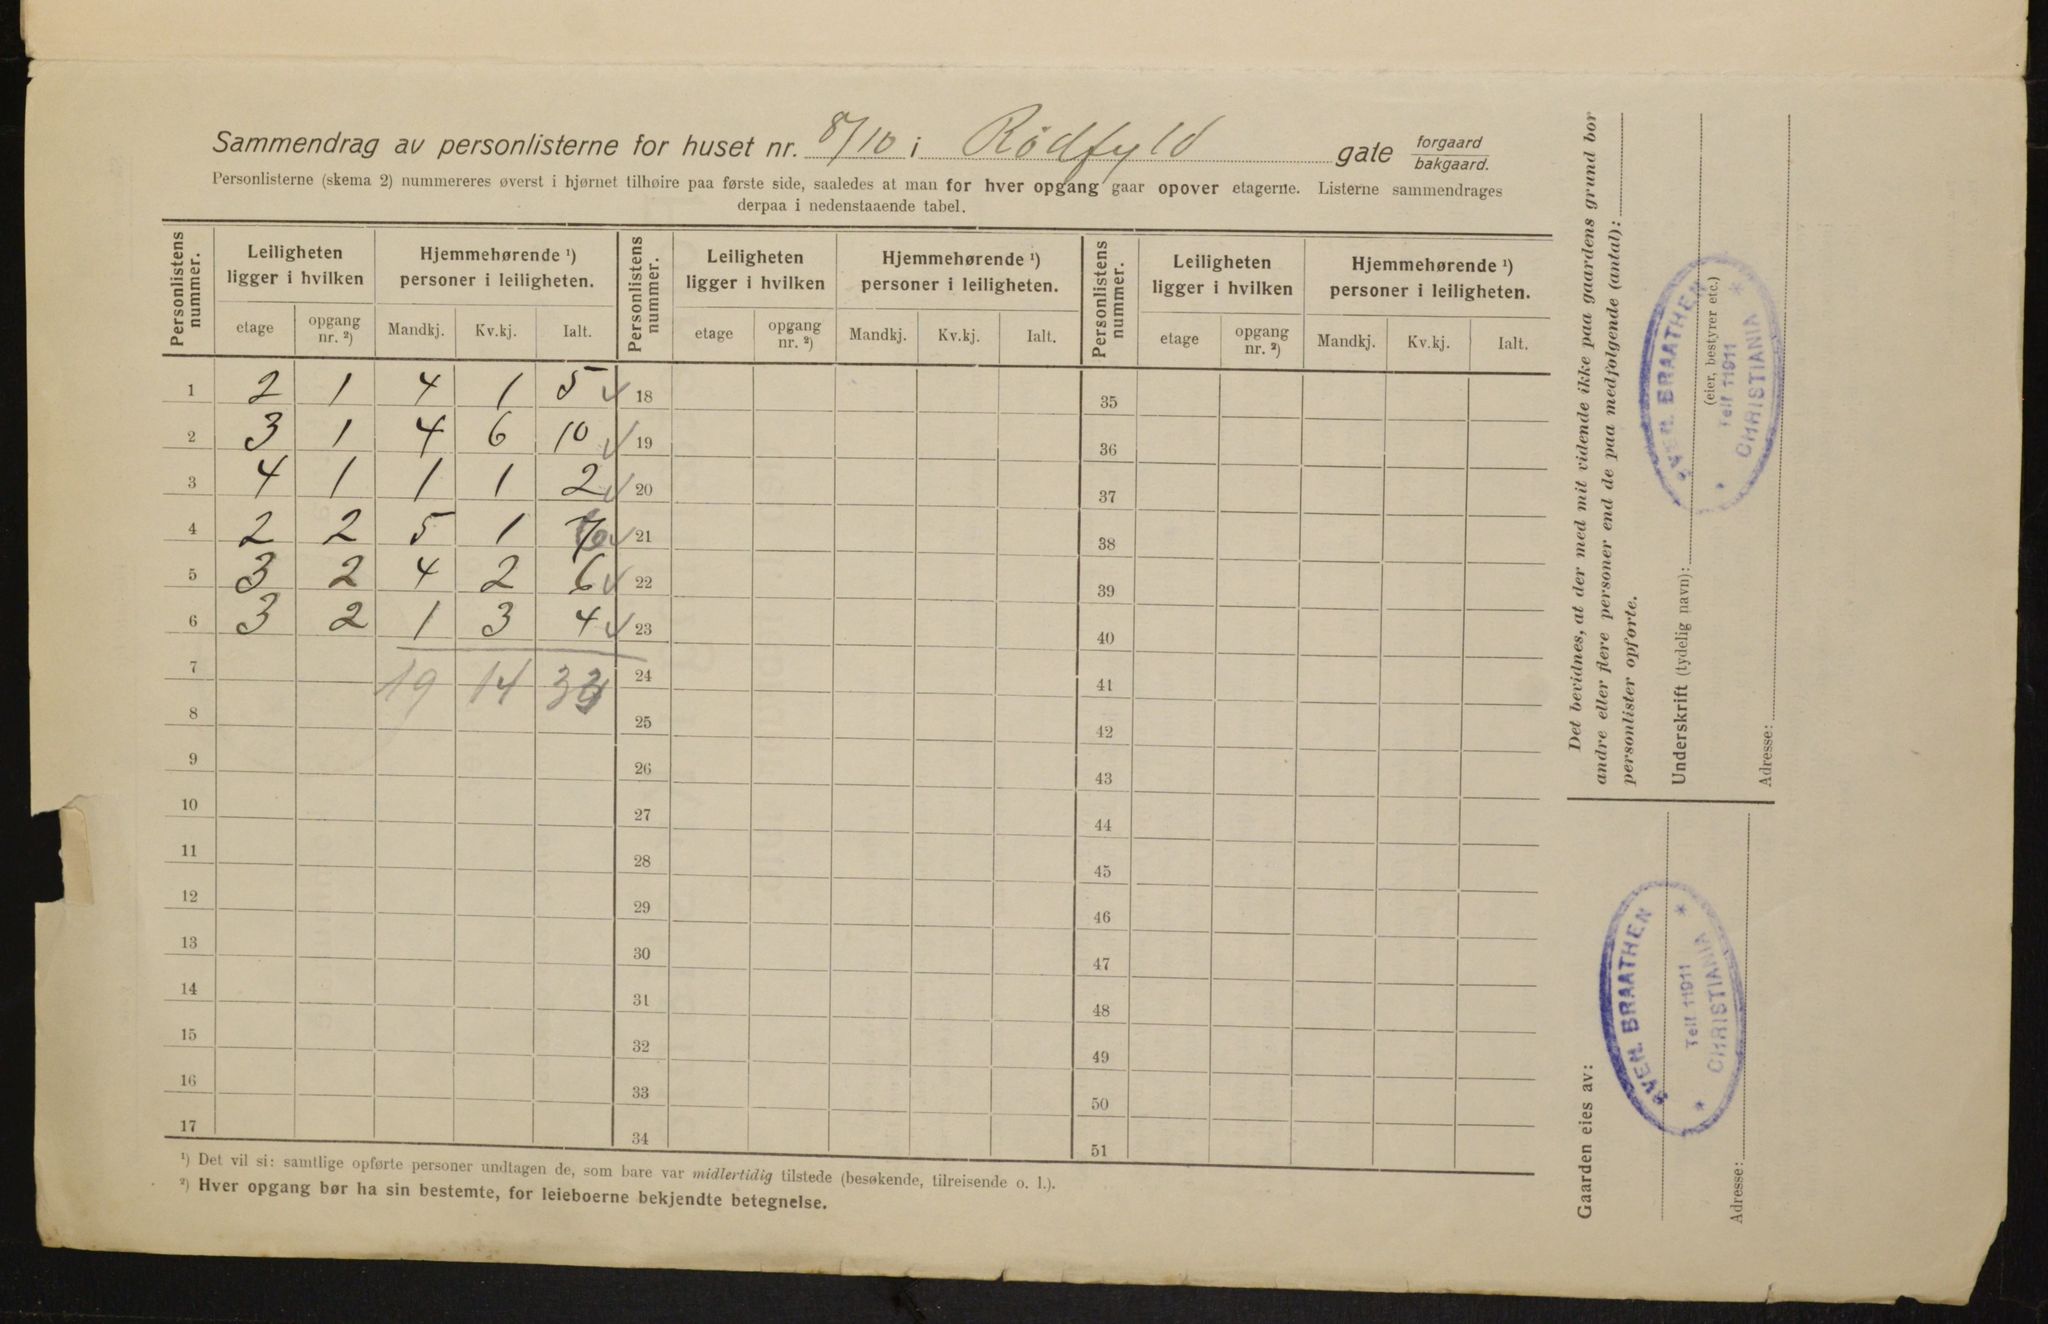 Sammendrag av personlisterne for huset nr. 8/10 i Rødfyld gate forgaard bakgaard.
Personlisterne (skema 2) nummereres øverst i hjørnet tilhøire paa første side, saaledes at man for hver opgang gaar opover etagerne. Listerne sammendrages
derpaa i nedenstaaende tabel.
Personlistens nummer. Leiligheten ligger i hvilken Hjemmehørende ¹) personer i leiligheten. Personlistens nummer. Leiligheten ligger i hvilken Hjemmehørende ¹) personer i leiligheten. Personlistens nummer. Leiligheten ligger i hvilken Hjemmehørende ¹) personer i leiligheten.
etage opgang nr. ²) Mandkj. Kv.kj. Ialt. etage opgang nr. ²) Mandkj. Kv.kj. Ialt. etage opgang nr. ²) Mandkj. Kv.kj. Ialt.
1 2 1 4 1 5 ✓ 18 35
2 3 1 4 6 10 ✓ 19 36
3 4 1 1 1 2 ✓ 20 37
4 2 2 5 1 6 ✓ 21 38
5 3 2 4 2 6 ✓ 22 39
6 3 2 1 3 4 ✓ 23 40
7 19 14 33 24 41
8 25 42
9 26 43
10 27 44
11 28 45
12 29 46
13 30 47
14 31 48
15 32 49
16 33 50
17 34 51
¹) Det vil si: samtlige opførte personer undtagen de, som bare var midlertidig tilstede (besøkende, tilreisende o. l.).
²) Hver opgang bør ha sin bestemte, for leieboerne bekjendte betegnelse.
Det bevidnes, at der med mit vidende ikke paa gaardens grund bor
andre eller flere personer end de paa medfølgende (antal):
personlister opførte.
Underskrift (tydelig navn):
(eier, bestyrer etc.)
Adresse:
SVEN. BRAATHEN
Telf 11911
* CHRISTIANIA *
Gaarden eies av:
Adresse:
SVEN. BRAATHEN
Telf 11911
* CHRISTIANIA *